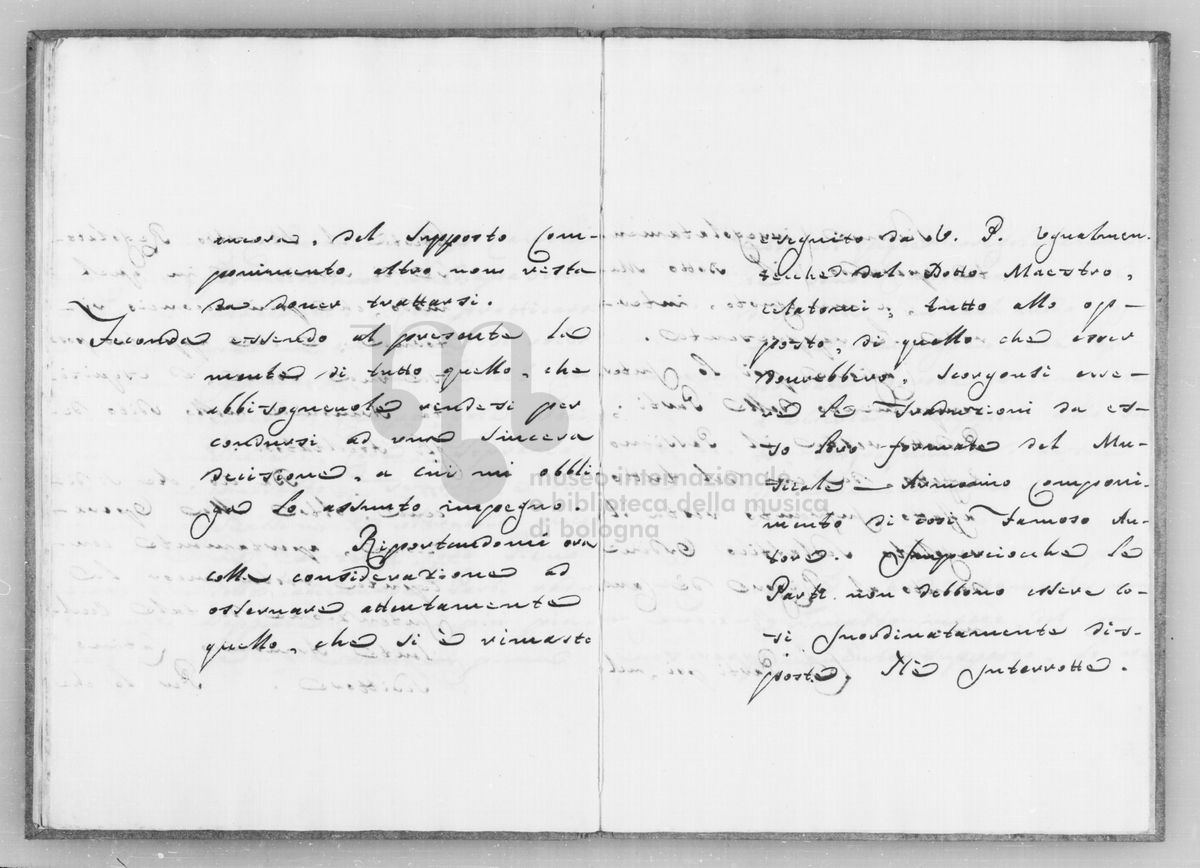 ancora, del supposto Com-
ponimento, altro non resta
da dover trattarsi.
Seconda essendo al presente la
mente di tutto quello, che
abbisognevole rendesi per
condursi ad una sincera
decisione, a cui mi obbli-
ga lo assunto impegno
Riportandomi ora
colla considerazione ad
osservare attentamente
quello, che si è rimasto
eseguito da V. P. Ugualmen-
te che dal Dotto Maestro,
tutto allo op-
posto, di quello che esser
dovrebbero, scorgonsi esse-
re le Traduzioni da es-
so loro formate del Mu-
sicale = Armonico Componi-
mento di così Famoso Au-
tore. Imperciocche le
Parti non debbono essere co-
si Inordinatamente dis-
poste, Nè Interrotte.
museo internazionale
e biblioteca della musica
di bologna